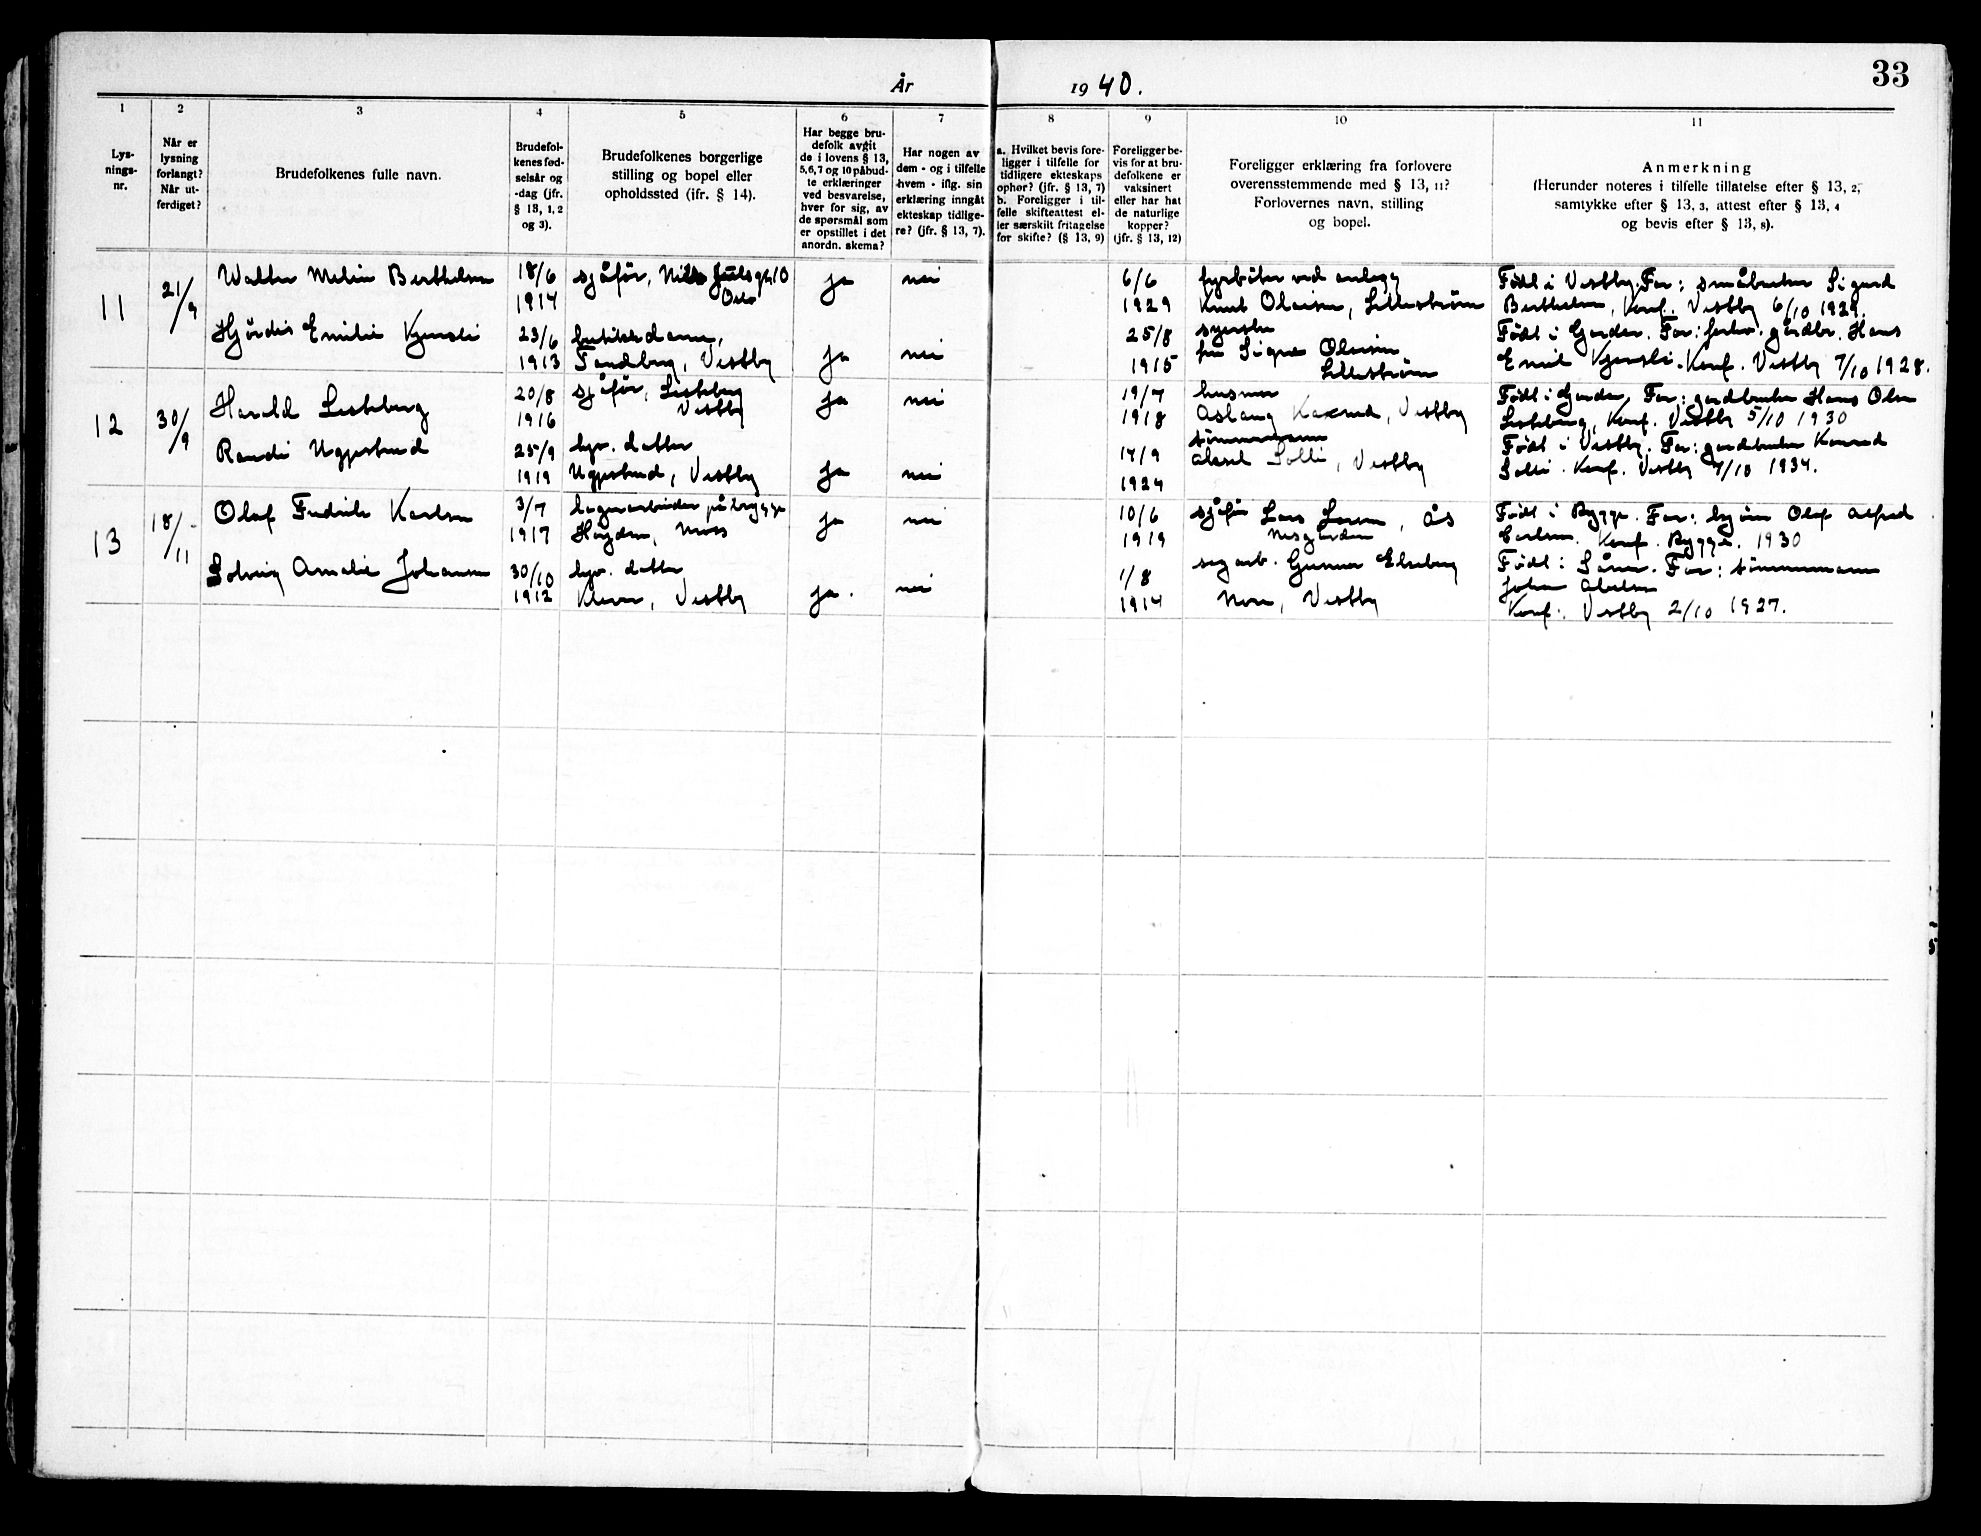 33
År 1940.
1
2
3
4
5
6
7
8
9
10
11
Lys-
nings-
nr.
Når er
lysning
forlangt?
Når ut-
ferdiget?
Brudefolkenes fulle navn.
Brudefol-
kenes fød-
selsår og
-dag (jfr.
§ 13, 1, 2
og 3).
Brudefolkenes borgerlige
stilling og bopel eller
opholdssted (ifr. § 14).
Har begge bru-
defolk avgit
de i lovens § 13,
5,6,7 og 10 påbud-
te erklæringer
ved besvarelse,
hver for sig, av
de spørsmål som
er opstillet i det
anordn. skema?
Har nogen av
dem - og i tilfelle
hvem - iflg. sin
erklæring inngåt
ekteskap tidlige-
re? (jfr. § 13, 7).
a. Hvilket bevis fore-
ligger i tilfelle for
tidligere ekteskaps
ophør? (jfr. § 13, 7)
b. Foreligger i til-
felle skifteattest el-
ler særskilt fritagelse
for skifte? (§ 13, 9)
Foreligger be-
vis for at bru-
defolkene er
vaksinert
eller har hat
de naturlige
kopper?
(jfr. § 13, 12)
Foreligger erklæring fra forlovere
overensstemmende med § 13, 11?
Forlovernes navn, stilling
og bopel.
Anmerkning
(Herunder noteres i tilfelle tillatelse efter § 13, 2,
samtykke efter § 13, 3, attest efter § 13, 4
og bevis efter § 13, 8).
11
21/9
Walter Melin Berthelsen
18/6
1914
sjåfør, Nils Juels gt. 10
Oslo
ja
nei
6/6
1929
fyrbøter ved anlegg
Knut Olaisen, Lillestrøm
Født i Vestby. Far: småbruker Sigurd
Berthelsen, Konf. Vestby 6/10 1929.
Hjørdis Emilie Kjensli
23/6
1913
butikkdame,
Vestby
ja
nei
25/8
1915
syerske
fru Signe Olaisen
Lillestrøm
Født i Garder. Far: forhv. gårdbr. Hans
Emil Kjensli. Konf. Vestby 7/10 1928.
12
30/9
Harald Liseberg
20/8
1916
sjåfør, Liseberg
Vestby
ja
nei
19/7
1918
husmor
Aslaug Vestby
Født i Garder, Far: gardbruker Hans Olsen
Liseberg, Konf. Vestby 5/10 1930
Randi Uggestrud
25/9
1919
hjv. datter
Vestby
ja
nei
17/9
1924
tømmermann
Aksel Solli, Vestby
Født i Vestby. Far: gardbruker Konrad
Solli. Konf. Vestby 7/10 1934.
13
18/11
Olaf Fredrik Karlsen
3/7
1917
lagerarbeider på brygge
Høyden, Moss
ja
nei
10/6
1919
sjåfør Lars Ås
Nesgarden
Født i Rygge. Far: Olaf Alfred
Carlsen. Konf. Rygge. 1930
Solveig Amalie Johansen
30/10
1912
hjv. datter
Vestby
ja.
nei
1/8
1914
sagarb. Gunnar Elseberg
Vestby
Født: Såner. Far: tømmermann
Johan
Konf: Vestby 2/10 1927.